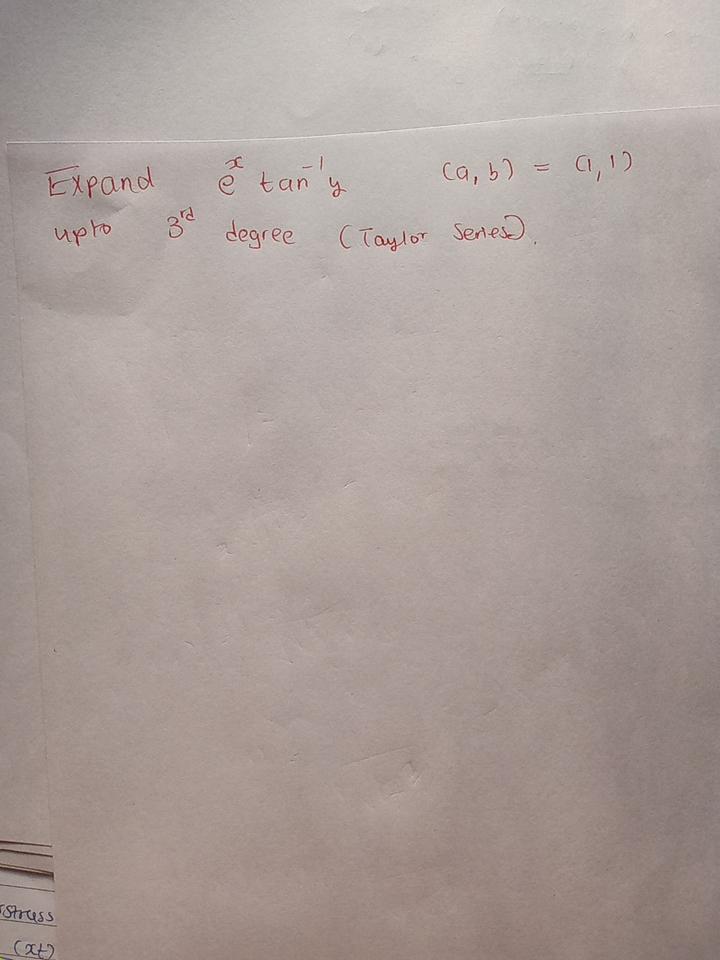 Expand e^x tan^-1 y (a, b) = (1, 1)
upto 3rd degree (Taylor Series).
stress
(xt)